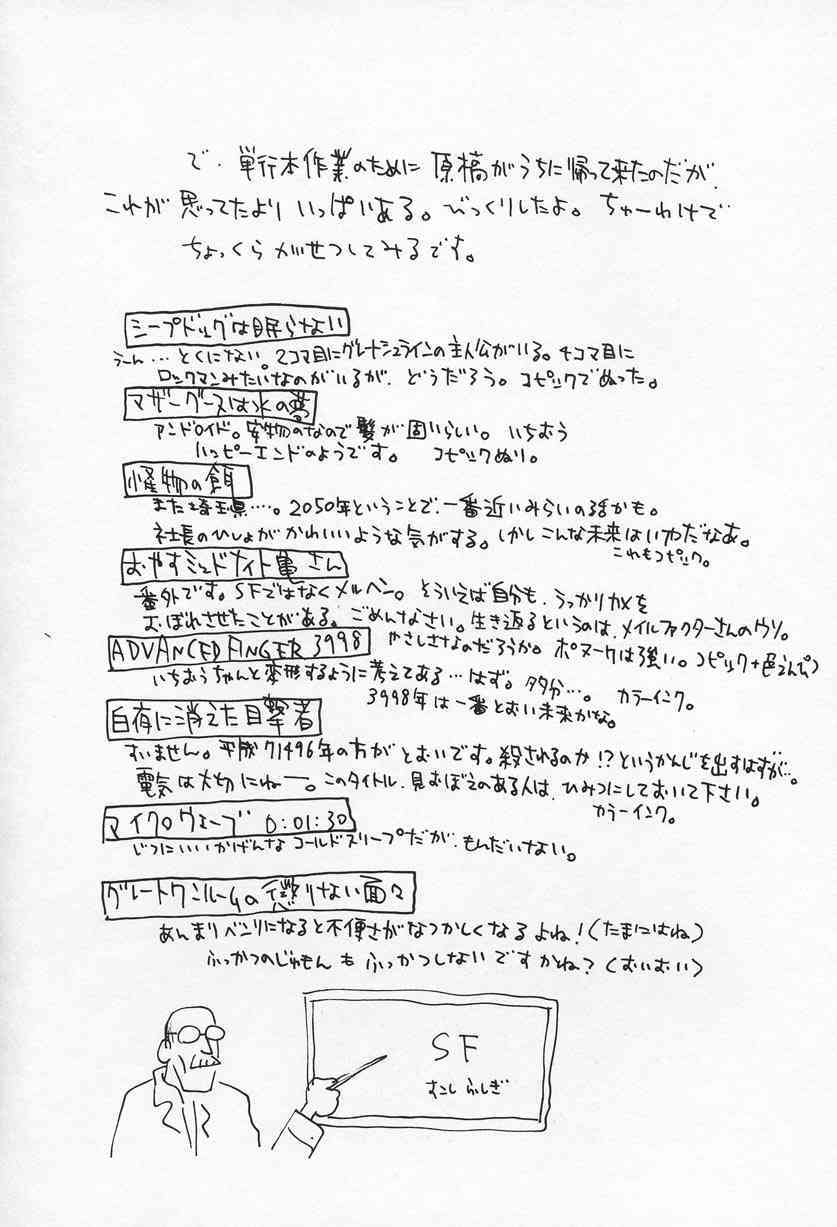 で、単行本作業のために原稿がうちに帰って来たのだが、
これが思ってたよりいっぱいある。びっくりしたよ。ちゅーわけで
ちょっくらかいせつしてみるです。
シープドッグは眠らない
うーん…とくにない。2コマ目にグレートシュラインの主人公がいる。4コマ目に
ロックマンみたいなのがいるが、どうだろう。コピックでぬった。
マザーグースは氷の夢
アンドロイド。安物のなので髪が固いらしい。いちおう
ハッピーエンドのようです。 コピックぬり。
怪物の餌
また埼玉県…。2050年ということで、一番近いみらいの話かも。
社長のひしょがかわいいような気がする。しかしこんな未来はいやだなあ。
これもコピック。
おやすミッドナイト亀さん
番外です。SFではなくメルヘン。そういえば自分も、うっかりカメを
おぼれさせたことがある。ごめんなさい。生き返るというのは、メイルファクターさんのウソ。
やさしさなのだろうか。ボヌークは強い。コピック+色えんぴつ
ADVANCED FINGER 3998
いちおうちゃんと変形するように考えてある…はず。多分…。 カラーインク。
3998年は一番とおい未来かな。
白夜に消えた目撃者
すいません。平成71496年の方がとおいです。殺されるのか!?というかんじを出すはずが…。
電気は大切にねー。このタイトル、見おぼえのある人は、ひみつにしておいて下さい。
カラーインク。
マイクロウェーブ 0:01:30
じつにいいかげんなコールドスリープだが、もんだいない。
グレートワンルームの懲りない面々
あんまりベンリになると不便さがなつかしくなるよね!(たまにはね)
ふっかつのじゅもんもふっかつしないですかね?(おいおい)
SF
すこしふしぎ